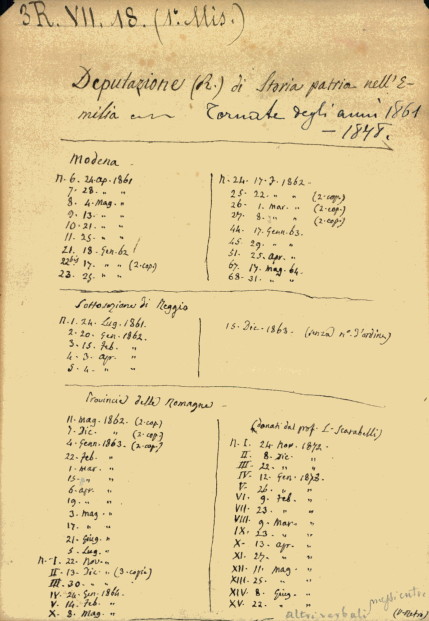 3R. VII. 18. (1ª Mis.)
Deputazione (R.) di Storia patria nell'E-
milia Tornate degli anni 1861
- 1878.
Modena
N. 6. 24 ap. 1861
7. 28. " "
8. 4. Mag. "
9. 13. " "
10. 21. " "
11. 25. " "
21. 18. Gen. 62
22bis 17. " " (2 cop.)
23. 25. " "
N. 24. 17. 1862
25. 22. " " (2 cop.)
26. 1. mar. " (2 cop.)
27. 8. " (2 cop.)
44. 17. Genn. 63.
45. 29. " "
51. 25. Apr. "
67. 17. Mag. 64.
68. 31. " "
Sottosezione di Reggio
N. 1. 24. Lug. 1861.
2. 20. Gen. 1862.
3. 15. Feb. "
4. 3. apr. "
5. 4. " "
15. Dic. 1863 (senza n° d'ordine)
Provincie delle Romagne
11. Mag. 1862. (2 cop.)
7. Dic. " (2 cop.)
4. Genn. 1863. (2 cop.)
22. Feb. "
1. mar. "
15. "
6. apr. "
19. " "
3. Mag. "
17. " "
21. Giug. "
5. Lug. "
N. I. 22. Nov. "
II. 13. Dic. " (3 copie)
III. 30. " "
IV. 24. Gen. 1864.
V. 14. Feb. "
X. 8. Mag. "
(Donati dal prof. L. Scarabelli)
N. I. 24. Nov. 1872.
II. 8. Dic. "
III. 22. " "
IV. 12. Gen. 1873.
V. 26. " "
VI. 9. Feb. "
VII. 23. " "
VIII. 9. Mar. "
IX. 23. " "
X. 13. apr. "
XI. 27. " "
XII. 11. Mag. "
XIII. 25. " "
XIV. 8. Giug. "
XV. 22. " "
altri verbali